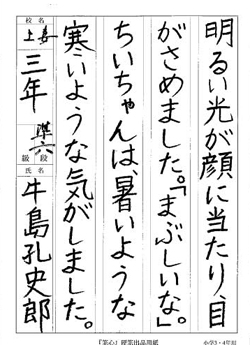 明るい光が顔に当たり、目
がさめました。「まぶしいな。」
ちいちゃんは、暑いような
寒いような気がしました。
校名
上妻
三年
準六
級段
氏名
牛島孔史郎
小学3・4年用